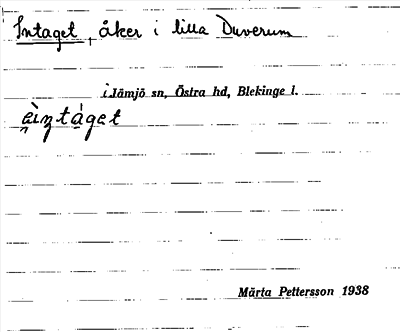 Intaget, åker i lilla Duverum
i Jämjö sn, Östra hd, Blekinge l.
Märta Pettersson 1938